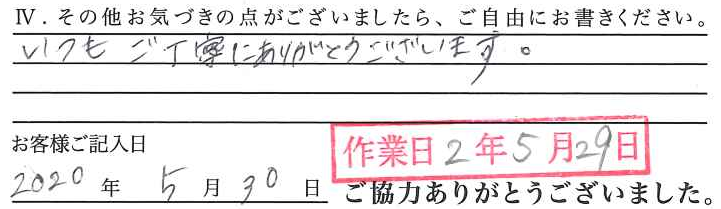 Ⅳ．その他お気づきの点がございましたら、ご自由にお書きください。
いつもご丁寧にありがとうございます。
お客様ご記入日
作業日2年5月29日
2020年5月30日
ご協力ありがとうございました。